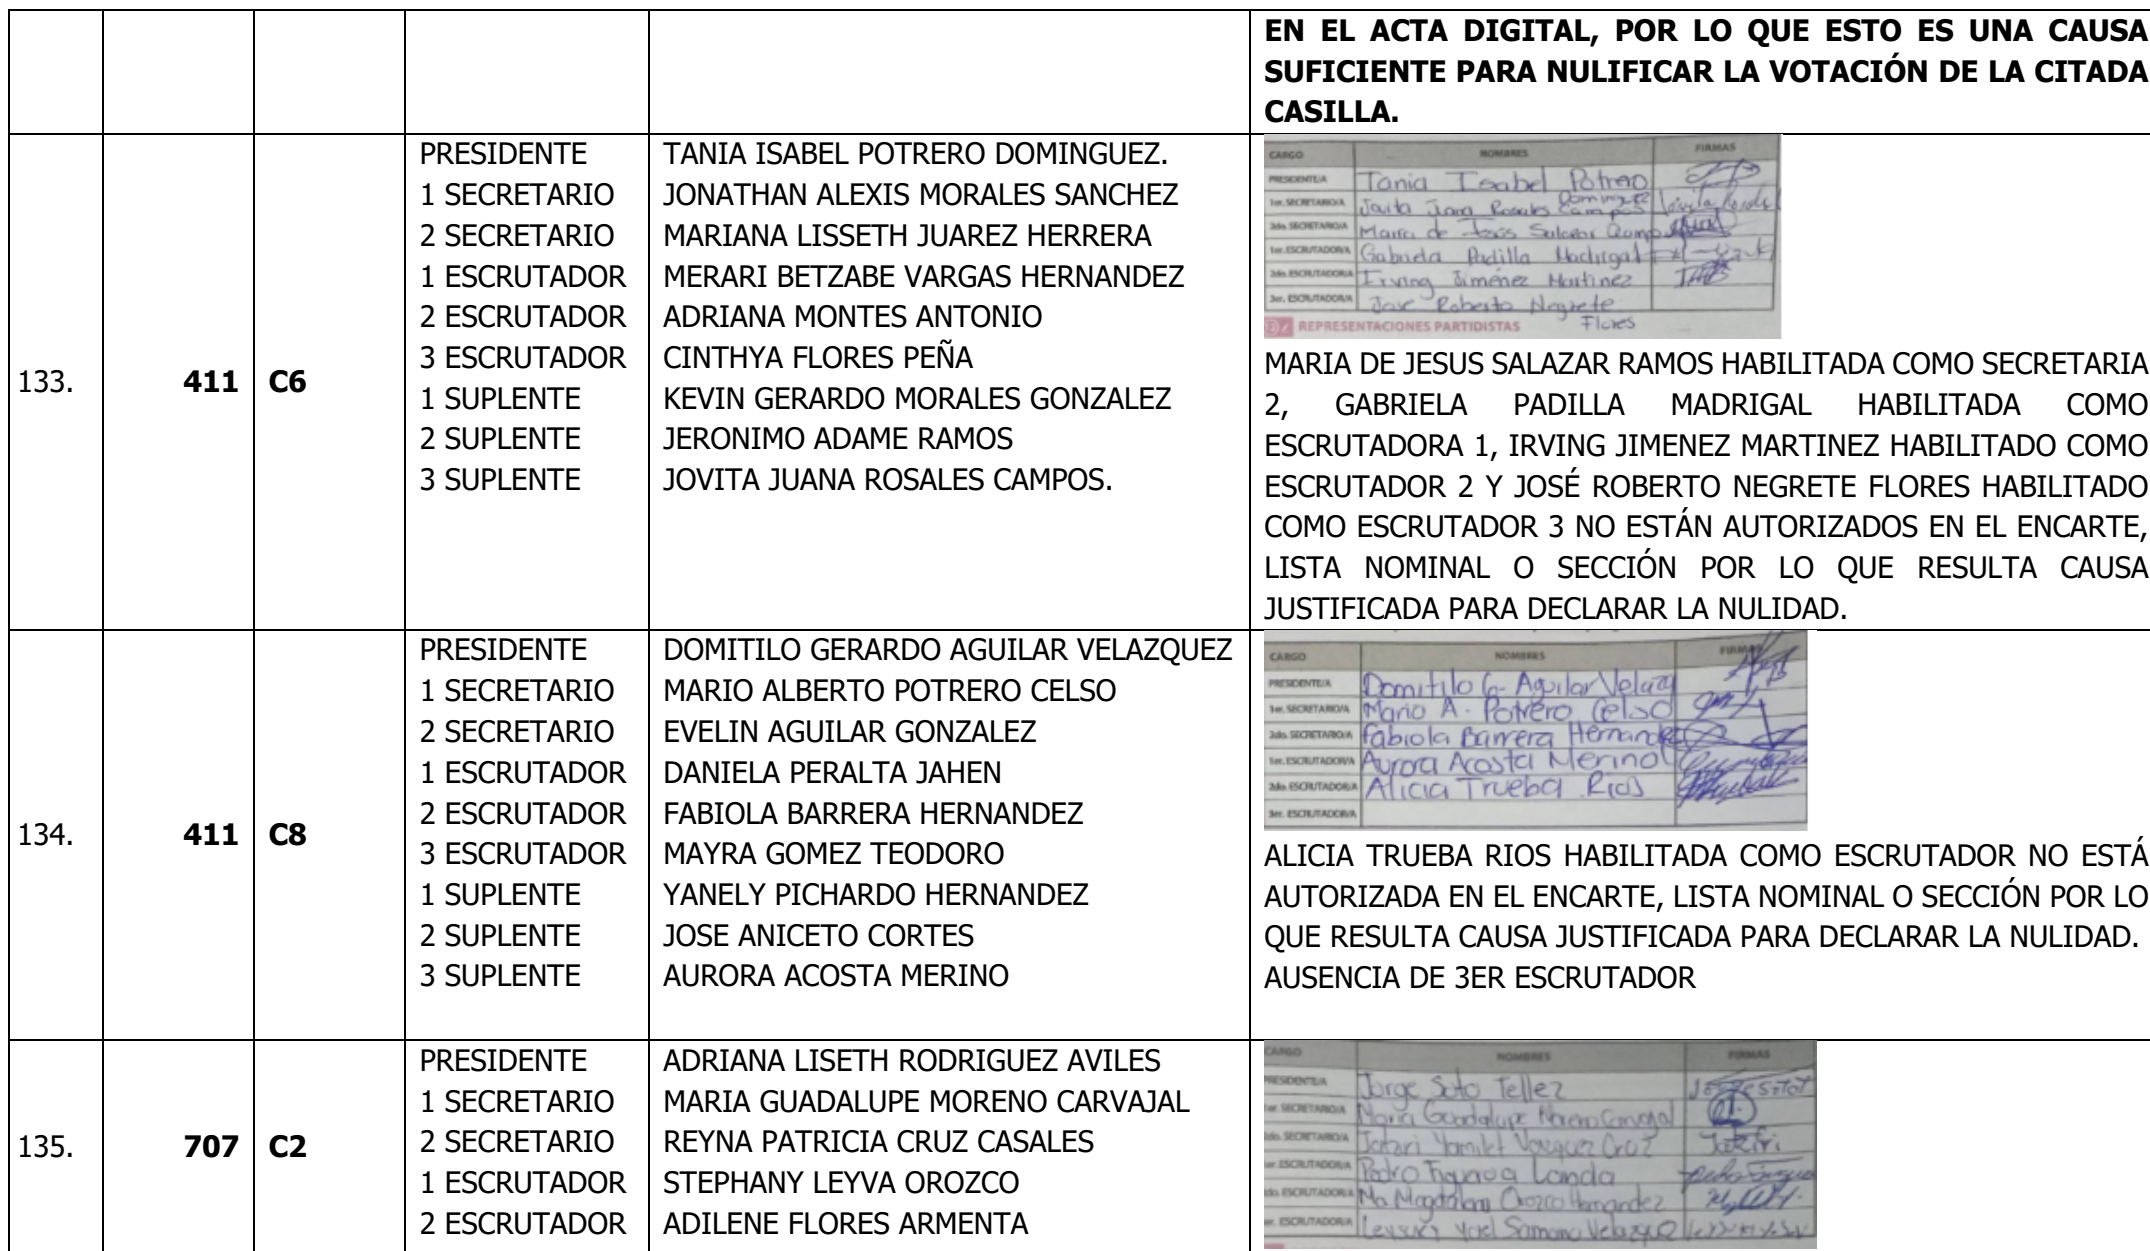 EN EL ACTA DIGITAL, POR LO QUE ESTO ES UNA CAUSA
SUFICIENTE PARA NULIFICAR LA VOTACIÓN DE LA CITADA
CASILLA.
133.
411
C6
PRESIDENTE
1 SECRETARIO
2 SECRETARIO
1 ESCRUTADOR
2 ESCRUTADOR
3 ESCRUTADOR
1 SUPLENTE
2 SUPLENTE
3 SUPLENTE
TANIA ISABEL POTRERO DOMINGUEZ.
JONATHAN ALEXIS MORALES SANCHEZ
MARIANA LISSETH JUAREZ HERRERA
MERARI BETZABE VARGAS HERNANDEZ
ADRIANA MONTES ANTONIO
CINTHYA FLORES PEÑA
KEVIN GERARDO MORALES GONZALEZ
JERONIMO ADAME RAMOS
JOVITA JUANA ROSALES CAMPOS.
CARGO NOMBRES FIRMAS
PRESIDENTE/A Tania Isabel Potrero
Dominguez
1er. SECRETARIO/A Rosales Campos
2do. SECRETARIO/A Maria de Jesus Salazar
1er. ESCRUTADOR/A Gabriela Padilla Madrigal
2do. ESCRUTADOR/A Irving Jiménez Martinez
3er. ESCRUTADOR/A Jose Roberto Negrete
Flores
REPRESENTACIONES PARTIDISTAS
MARIA DE JESUS SALAZAR RAMOS HABILITADA COMO SECRETARIA
2, GABRIELA PADILLA MADRIGAL HABILITADA COMO
ESCRUTADORA 1, IRVING JIMENEZ MARTINEZ HABILITADO COMO
ESCRUTADOR 2 Y JOSÉ ROBERTO NEGRETE FLORES HABILITADO
COMO ESCRUTADOR 3 NO ESTÁN AUTORIZADOS EN EL ENCARTE,
LISTA NOMINAL O SECCIÓN POR LO QUE RESULTA CAUSA
JUSTIFICADA PARA DECLARAR LA NULIDAD.
134.
411
C8
PRESIDENTE
1 SECRETARIO
2 SECRETARIO
1 ESCRUTADOR
2 ESCRUTADOR
3 ESCRUTADOR
1 SUPLENTE
2 SUPLENTE
3 SUPLENTE
DOMITILO GERARDO AGUILAR VELAZQUEZ
MARIO ALBERTO POTRERO CELSO
EVELIN AGUILAR GONZALEZ
DANIELA PERALTA JAHEN
FABIOLA BARRERA HERNANDEZ
MAYRA GOMEZ TEODORO
YANELY PICHARDO HERNANDEZ
JOSE ANICETO CORTES
AURORA ACOSTA MERINO
CARGO NOMBRES FIRMAS
PRESIDENTE/A Domitilo G. Aguilar
1er. SECRETARIO/A Mario A. Potrero Celso
2do. SECRETARIO/A Fabiola Barrera Hernandez
1er. ESCRUTADOR/A Aurora Acosta Merino
2do. ESCRUTADOR/A Alicia Trueba Rios
3er. ESCRUTADOR/A
ALICIA TRUEBA RIOS HABILITADA COMO ESCRUTADOR NO ESTÁ
AUTORIZADA EN EL ENCARTE, LISTA NOMINAL O SECCIÓN POR LO
QUE RESULTA CAUSA JUSTIFICADA PARA DECLARAR LA NULIDAD.
AUSENCIA DE 3ER ESCRUTADOR
135.
707
C2
PRESIDENTE
1 SECRETARIO
2 SECRETARIO
1 ESCRUTADOR
2 ESCRUTADOR
ADRIANA LISETH RODRIGUEZ AVILES
MARIA GUADALUPE MORENO CARVAJAL
REYNA PATRICIA CRUZ CASALES
STEPHANY LEYVA OROZCO
ADILENE FLORES ARMENTA
CARGO NOMBRES FIRMAS
PRESIDENTE/A Jorge Soto Tellez
1er. SECRETARIO/A Maria Guadalupe Moreno Carvajal
2do. SECRETARIO/A Vazquez Cruz
1er. ESCRUTADOR/A Pedro Figueroa Landa
2do. ESCRUTADOR/A Ma Magdalena Orozco Hernandez